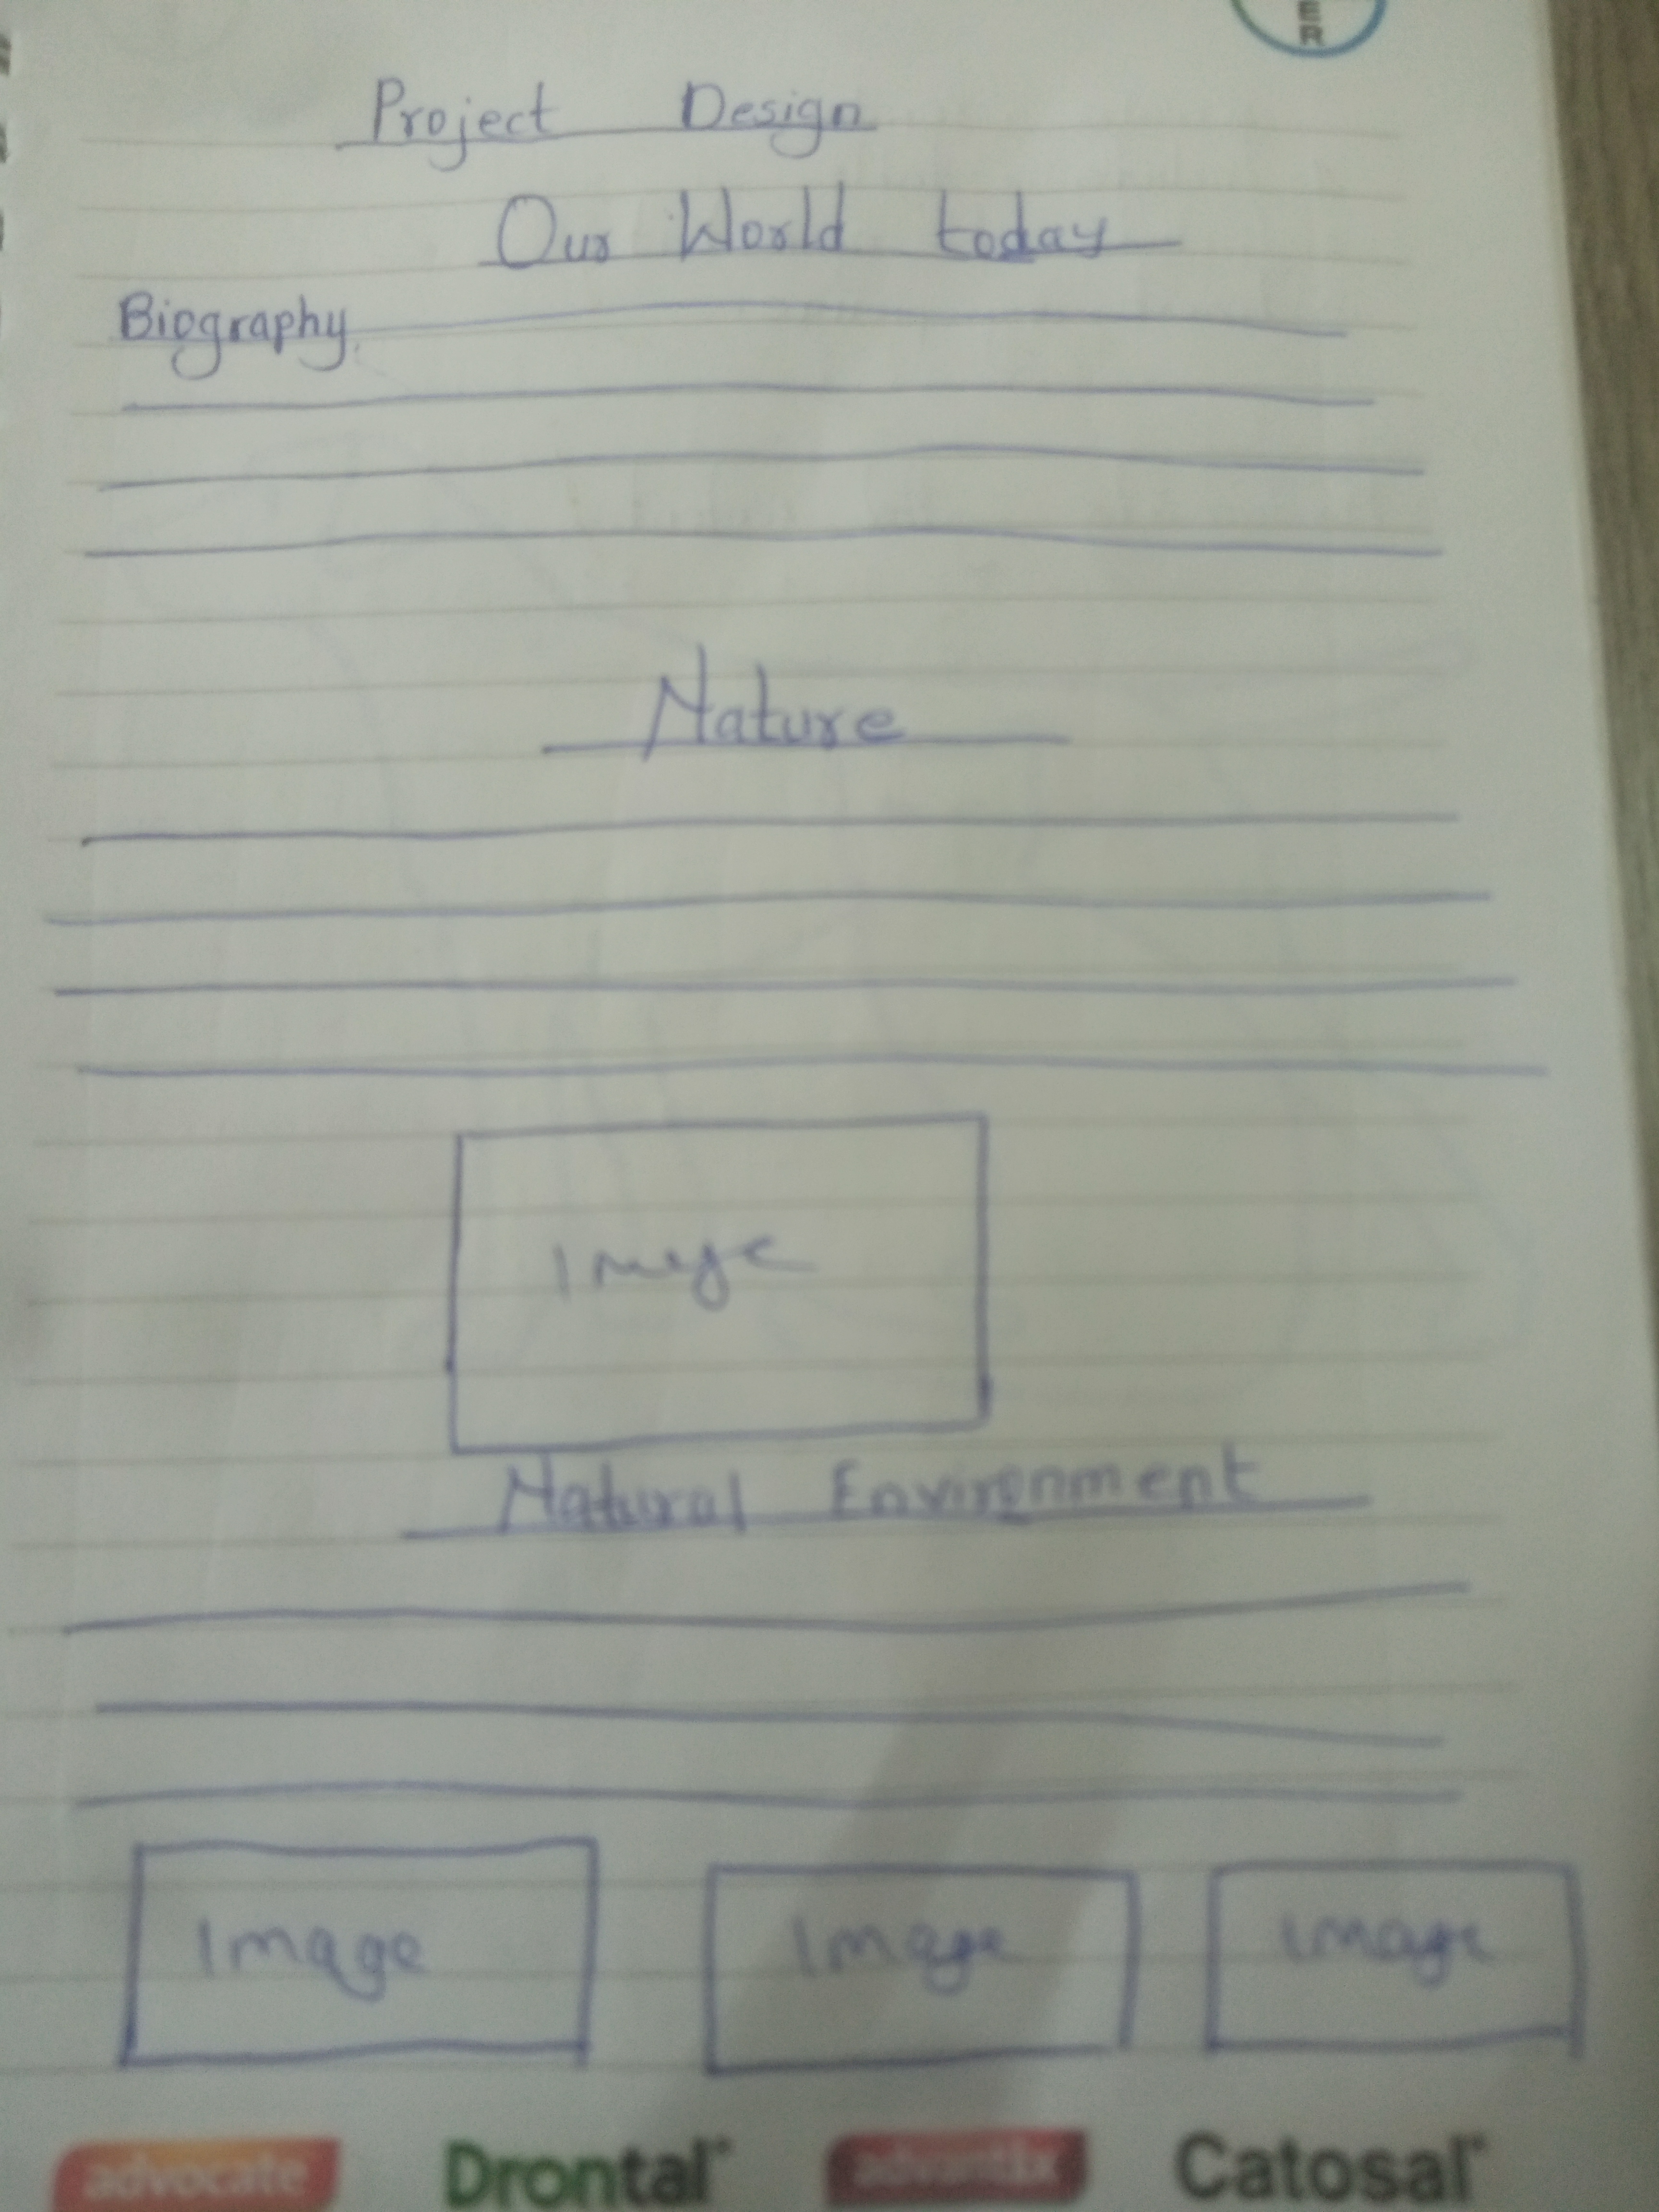 ER
Project Design
Our World today
Biography
Nature
Image
Natural Environment
Image Image Image
advocate Drontal advantix Catosal